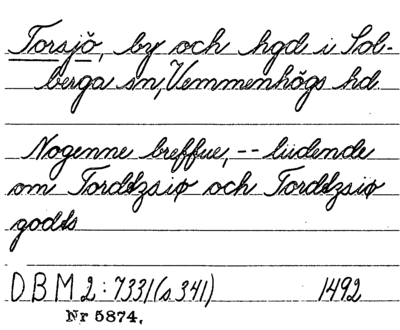 Torsjö, by och hgd i Sol-
berga sn, Vemmenhögs hd.
Nogenne breffue, -- liidende
om Tordtzsiø och Tordtzsiø
godts
DBM 2: 7331 (s 341) 1492
Nr 5874.